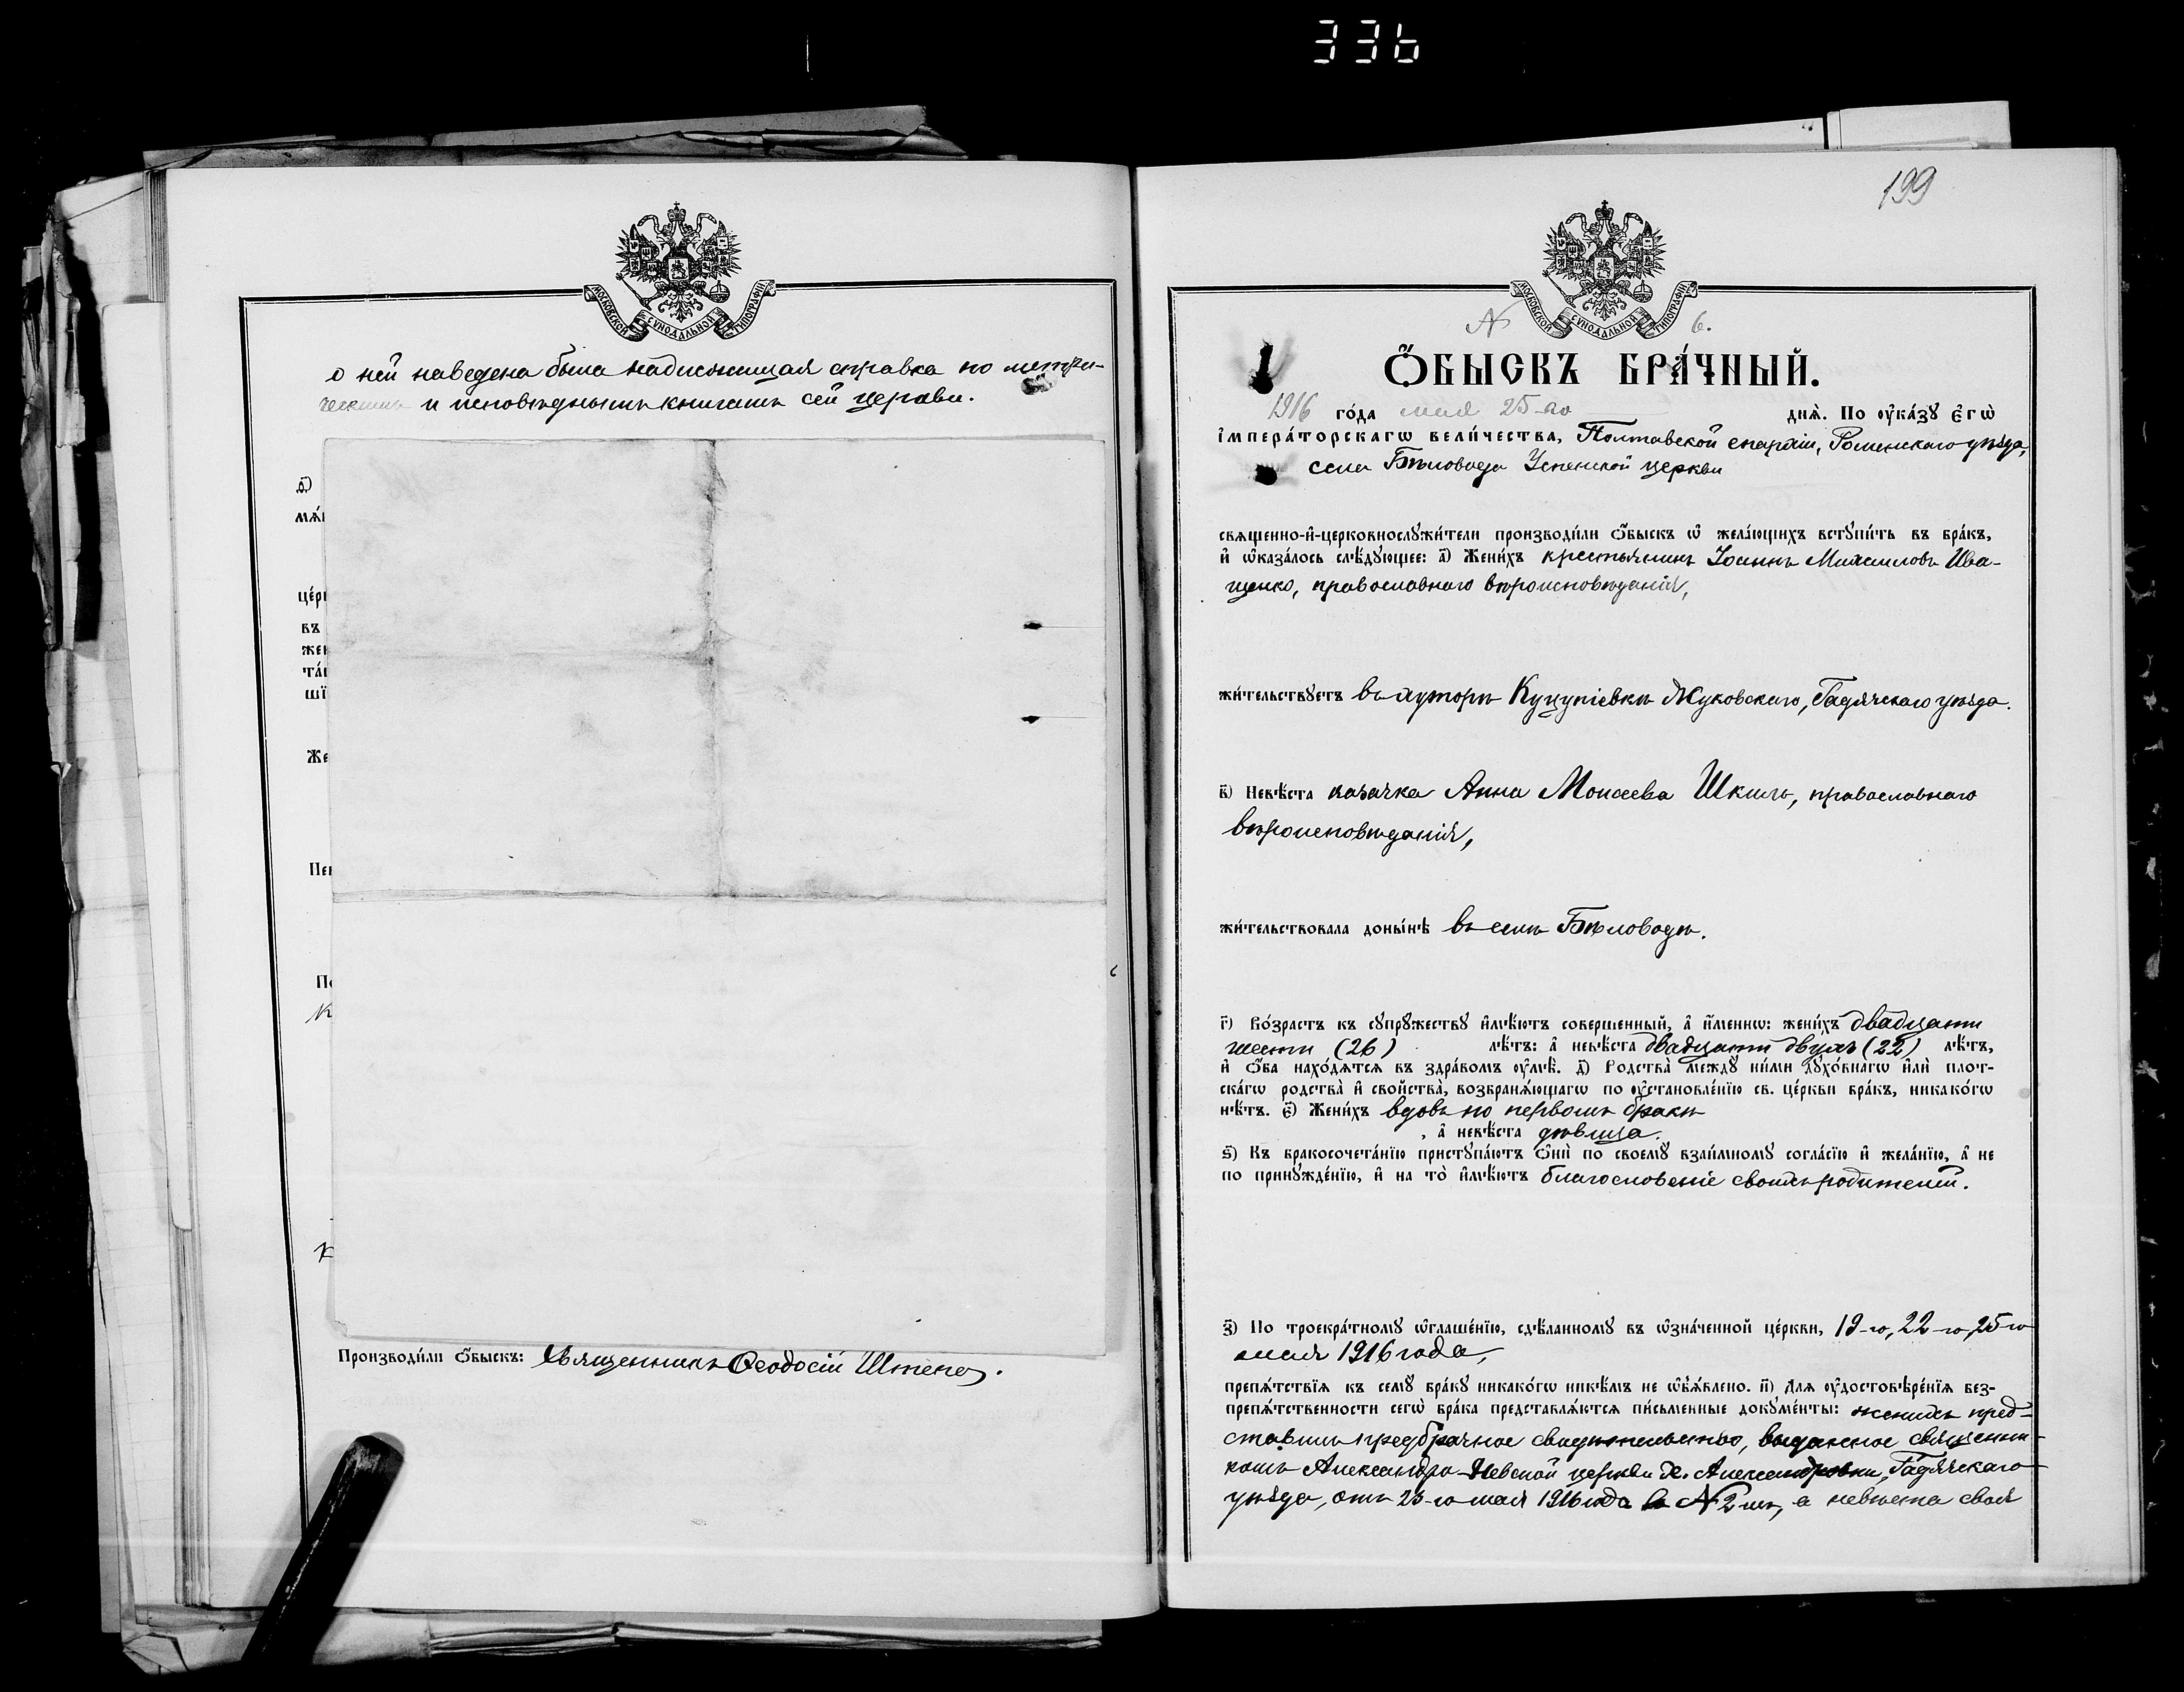 336
МОСКОВСКОЙ СУНОДАЛЬНОЙ ТИПОГРАФІИ
о ней наведена была надлежащая справка по метри-
ческимъ и исповѣднымъ книгамъ сей церкви.
д҃)
церк
въ
жен
та
ші
Же
Нев
По
Производи́ли ѻ҆́быскъ: Священникъ Ѳеодосій
199
МОСКОВСКОЙ СУНОДАЛЬНОЙ ТИПОГРАФІИ
N 6.
Ѻ҆́БЫСКЪ БРА́ЧНЫЙ.
1916 го́да мая 25-го дня̀. По ᲂу҆ка́зꙋ є҆гѡ̀
і҆мпера́торскагѡ вели́чества, Полтавской епархіи, Роменскаго уѣзда,
села Бѣловода Успенской церкви
священно-и҆-церковнослꙋжи́тели производи́ли ѻ҆́быскъ ѡ҆ жела́ющихъ встꙋпи́ть въ бра́къ,
и҆ ѡ҆каза́лось слѣ́дꙋющее: а҃) Жени́хъ крестьянинъ Іоаннъ Михаиловъ Ива-
щенко, православнаго вѣроисповѣданія,
жи́тельствꙋетъ въ хуторѣ Куцупіевкѣ Жуковскаго, Гадячскаго уѣзда.
в҃) Невѣ́ста казачка Анна Моисеева Шкиль, православнаго
вѣроисповѣданія,
жи́тельствовала доны́нѣ въ селѣ Бѣловодѣ.
г҃) Во́зрастъ къ сꙋпрꙋ́жествꙋ и҆мѣ́ютъ соверше́нный, а҆ и҆́меннѡ: жени́хъ двадцати
шести (26) лѣ́тъ: а҆ невѣ́ста двадцати двухъ (22) лѣ́тъ,
и҆ ѻ҆́ба нахо́дятся въ здра́вомъ ᲂу҆мѣ̀. д҃) Родства̀ междꙋ̀ ни́ми дꙋхо́внагѡ и҆лѝ плот-
ска́гѡ родства̀ и҆ свойства̀, возбраня́ющагѡ по ᲂу҆становле́нїю св. це́ркви бра́къ, никако́гѡ
нѣ́тъ. є҃) Жени́хъ вдовъ по первомъ бракѣ
, а҆ невѣ́ста дѣвица.
ѕ҃) Къ бракосочета́нїю пристꙋпа́ютъ ѻ҆нѝ по своемꙋ̀ взаи́мномꙋ согла́сїю и҆ жела́нїю, а҆ не
по принꙋжде́нїю, и҆ на то̀ и҆мѣ́ютъ благословеніе своихъ родителей.
з҃) По троекра́тномꙋ ѡ҆глаше́нїю, сдѣ́ланномꙋ въ ѡ҆зна́ченной це́ркви, 19-го, 22-го, 25-го
мая 1916 года,
препя́тствїя къ семꙋ̀ бра́кꙋ никако́гѡ никѣ́мъ не ѡ҆б̾я́влено. и҃) Для ᲂу҆достовѣре́нїя без-
препя́тственности сегѡ̀ бра́ка представля́ются пи́сьменные докꙋме́нты: женихъ пред-
ставилъ предбрачное свидѣтельство, выданное священни-
комъ Александро-Невской церкви х. Александровки, Гадячскаго
уѣзда, отъ 23-го мая 1916 года за N 2 мъ, а невѣста своя